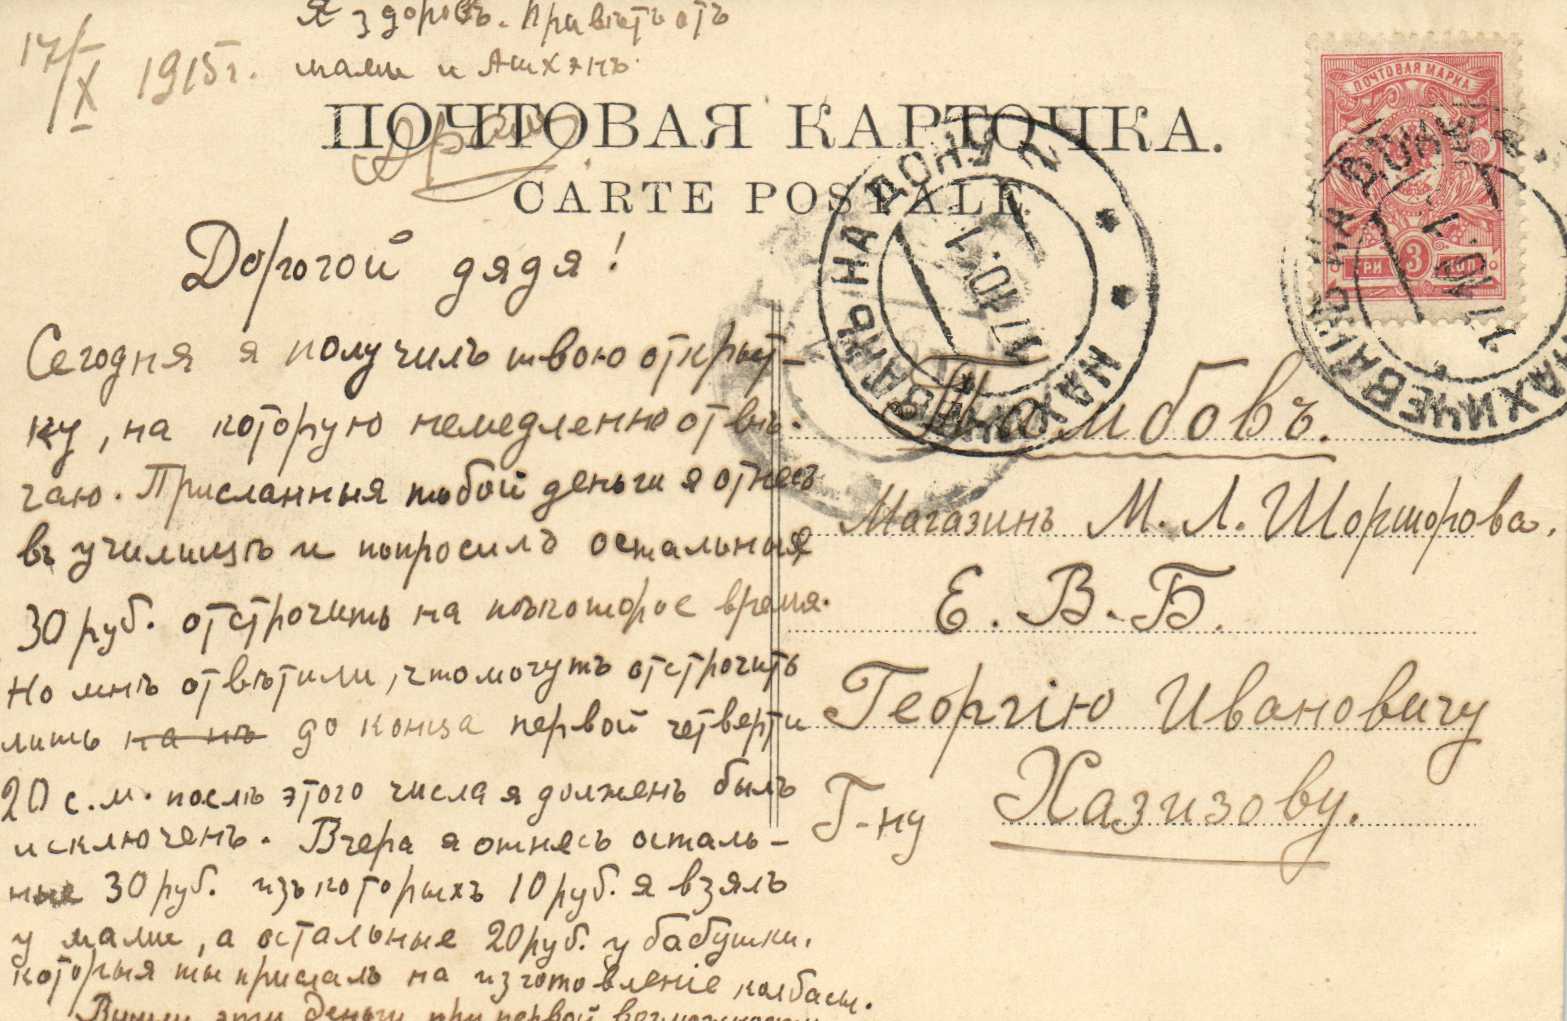 17/X 1915 г.
Я здоровъ. Привѣтъ отъ
мамы и Ашхэнъ.
ПОЧТОВАЯ КАРТОЧКА.
CARTE POSTALE
ПОЧТОВАЯ МАРКА
ТРИ 3 КОП.
НАХИЧЕВАНЬ НА ДОНУ 2
17.10.1
НАХИЧЕВАНЬ НА ДОНУ
17.10.1
Дорогой дядя!
Сегодня я получилъ твою открыт-
ку, на которую немедленно отвѣ-
чаю. Присланныя тобой деньги я отнесъ
въ училище и попросилъ остальныя
30 руб. отстрочить на нѣкоторое время.
Но мнѣ отвѣтили, что могутъ отстрочить
лишь до конца первой четверти
20 с.м. послѣ этого числа я долженъ быть
исключенъ. Вчера я отнесъ осталь-
ные 30 руб. изъ которыхъ 10 руб. я взялъ
у мамы, а остальные 20 руб. у бабушки,
которыя ты прислалъ на изготовленіе колбасы.
Вышли эти деньги при первой возможности
Тамбовъ.
Магазинъ М. Л. Шоршорова.
Е. В. Б.
Георгію Ивановичу
Г-ну Хазизову.